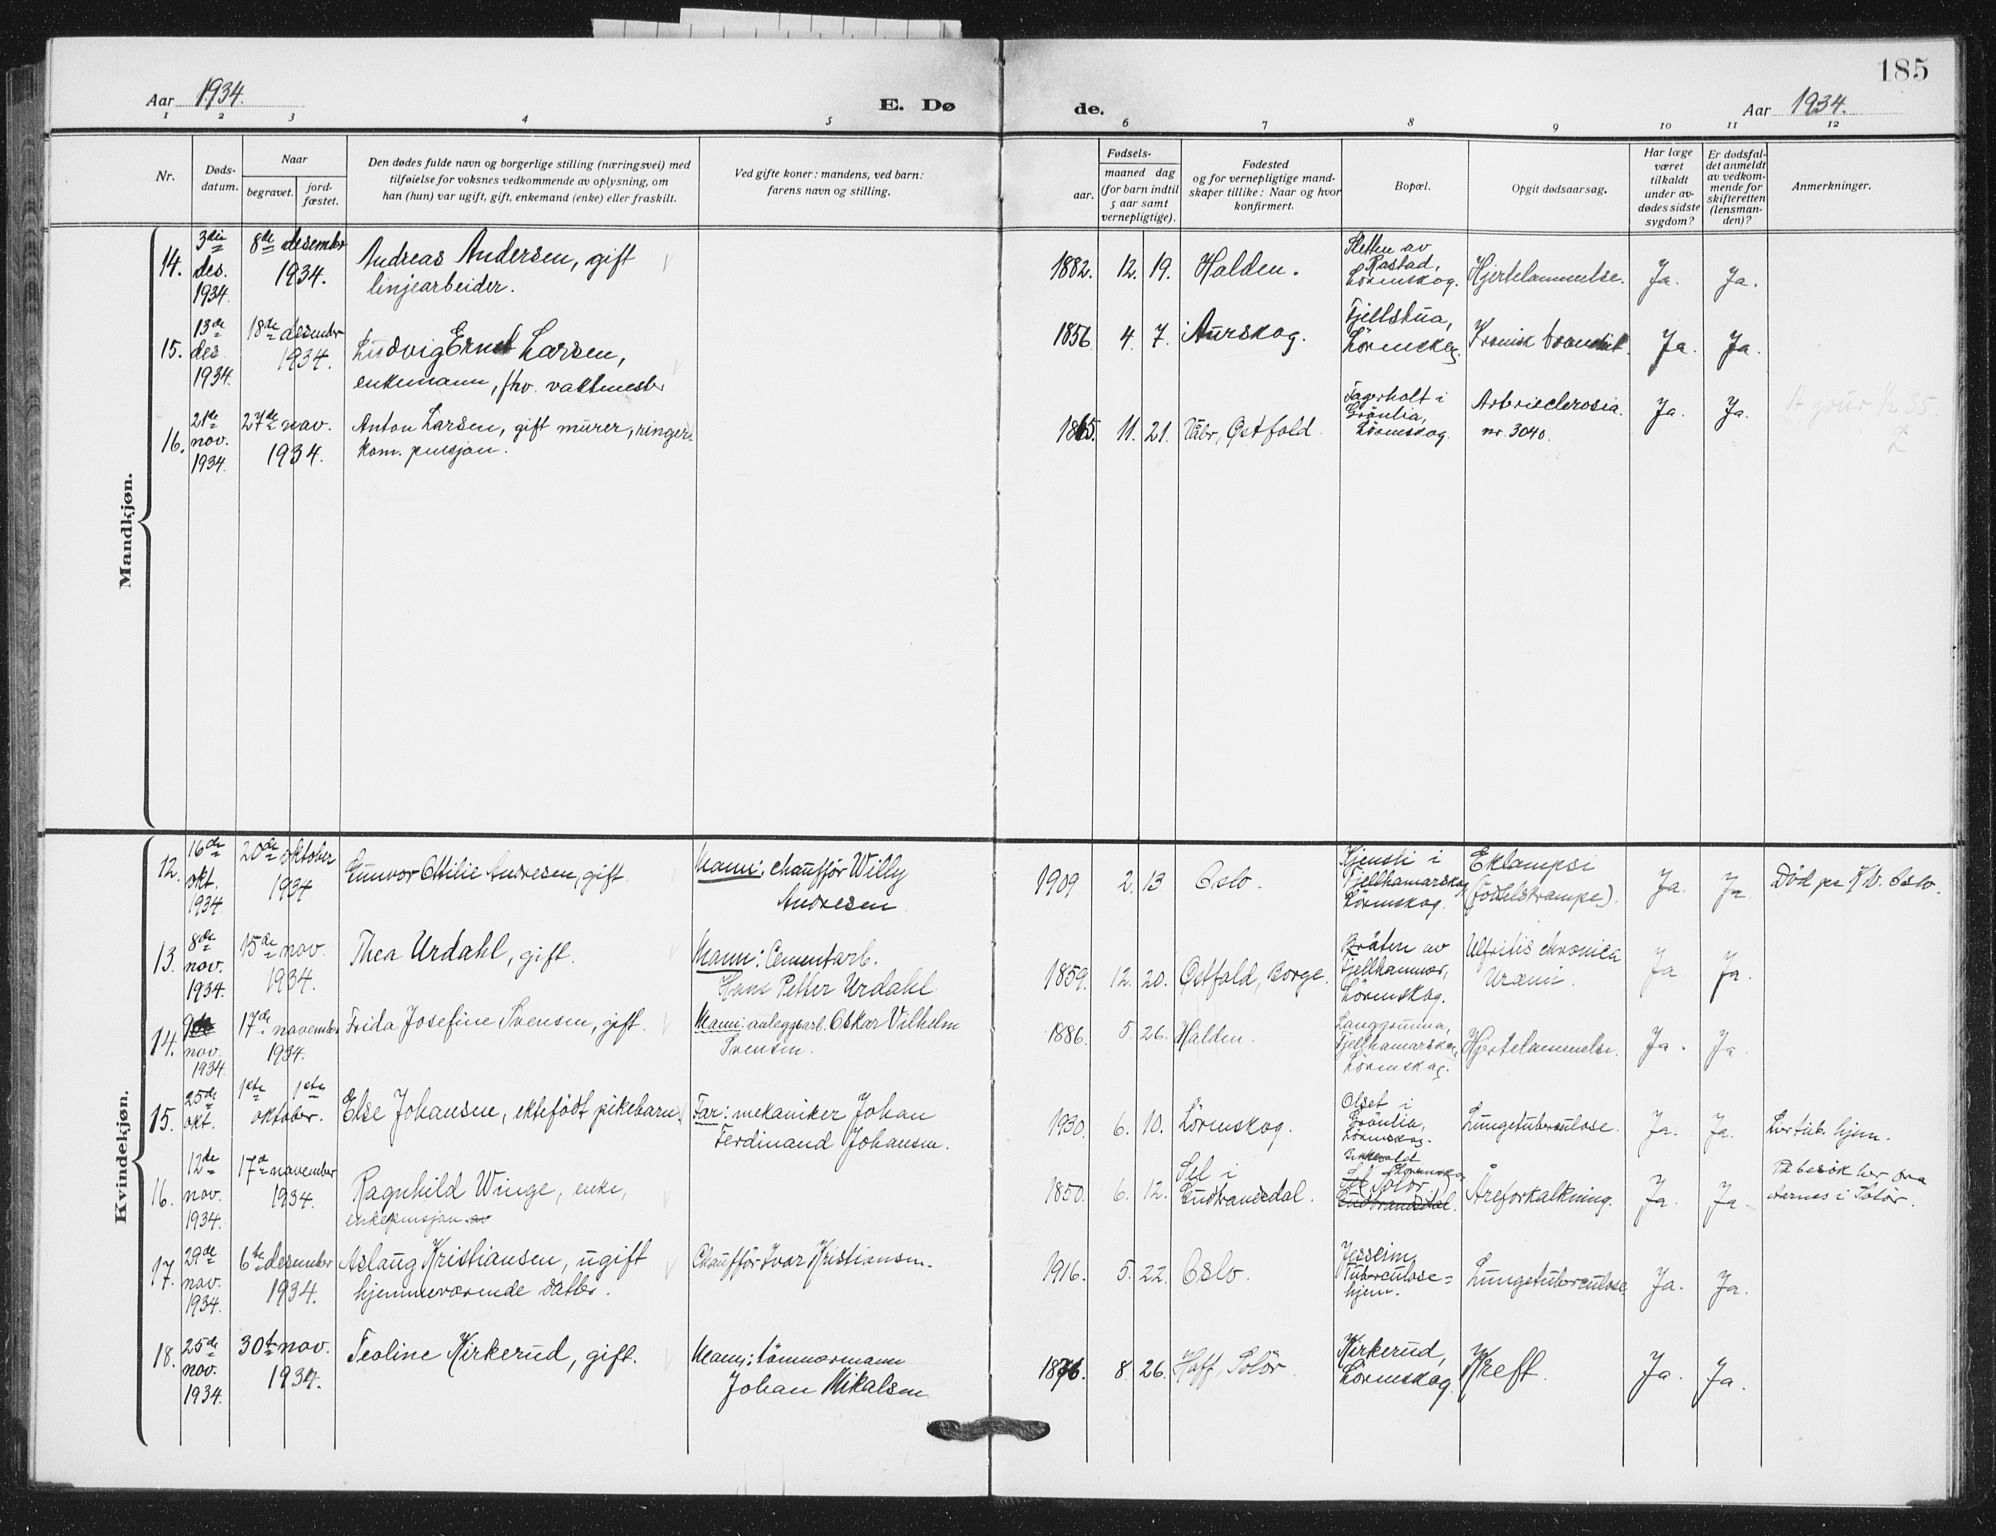 185
Aar 1934.
E. Dø
de.
Aar 1934.
1 2 3 4 5 6 7 8 9 10 11 12
Nr.
Døds-
datum.
Naar
begravet.
jord-
fæstet.
Den dødes fulde navn og borgerlige stilling (næringsvei) med
tilføielse for voksnes vedkommende av oplysning, om
han (hun) var ugift, gift, enkemand (enke) eller fraskilt.
Ved gifte koner: mandens, ved barn:
farens navn og stilling.
Fødsels-
aar.
maaned dag
(for barn indtil
5 aar samt
vernepligtige).
Fødested
og for vernepligtige mand-
skaper tillike: Naar og hvor
konfirmert.
Bopæl.
Opgit dødsaarsag.
Har læge
været
tilkaldt
under av-
dødes sidste
sygdom?
Er dødsfal-
det anmeldt
av vedkom-
mende for
skifteretten
(lensman-
den)?
Anmerkninger.
Mandkjøn.
14.
3die
des.
1934.
8de desember
1934.
Andreas Andersen, gift
linjearbeider.
1882. 12. 19.
Halden.
Sletten av
Rastad,
Lörenskog.
Hjertelammelse.
Ja.
Ja.
15.
13de
des.
1934.
18de desember
1934.
Ludvig Ernst Larsen,
enkemann, fhv. vaktmester
1856 4. 7.
Aurskog.
Fjellstua,
Lörenskog.
Kronisk
Ja.
Ja.
16.
21de
nov.
1934.
27de nov.
1934.
Anton Larsen, gift murer,
kom. pensjon.
1865. 11. 21.
Våler, Østfold.
Fagerholt i
Grönlia,
Lörenskog.
nr. 3040.
Ja.
Ja.
Kvindekjøn.
12.
16de
okt.
1934
20de oktober
1934
Gunvor Ottilie Andresen, gift.
Mann: chaufför Willy
Andresen
1909. 2. 13
Oslo.
i
Fjellhamarskog
Lörenskog.
Eklampsi
(födselskrampe).
Ja.
Ja
Död på Kv. Oslo.
13.
8de
nov.
1934.
15de nov.
1934.
Thea Urdahl, gift.
Mann: Cementarb.
Hans Petter Urdahl
1859. 12. 20.
Østfold, Borge.
Bråten av
Fjellhammer,
Lörenskog.
chronica
Uræmi.
Ja
Ja.
14.
9
nov.
1934.
17de november
1934.
Frida Josefine Svensen, gift.
Mann: anleggsarb. Oskar Vilhelm
Svensen.
1886. 5. 26.
Halden.
Fjellhamarskog,
Lörenskog.
Hjertelammelse.
Ja.
Ja.
15.
25de
okt.
1ste 1ste
oktober.
Else Johansen, ektefödt pikebarn.
Far: mekaniker Johan
Ferdinand Johansen.
1930. 6. 10.
Lörenskog.
Olset i
Grönlia,
Lörenskog.
Lungetuberculose.
Ja.
Ja.
hjem.
16.
12de
nov.
1934.
17de november
1934.
Ragnhild Winge, enke,
enkepensjon av
1850. 6. 12.
Sel i
Gudbransdal.
Solör
Gudbrandsdal.
Åreforkalkning.
Ja.
Ja.
På besök her fra
i Solör.
17.
29de
nov.
1934.
6te desember
1934.
Aslaug Kristiansen, ugift
hjemmeværende datter.
Chaufför Ivar Kristiansen.
1916. 5. 22.
Oslo.
Jessheim
tuberculose-
hjem.
Lungetuberculose
Ja.
Ja.
18.
25de
nov.
1934.
30te nov.
1934.
Teoline Kirkerud, gift.
Mann: tömmermann
Johan Mikalsen
1876. 8. 26.
Hoff, Solör.
Kirkerud,
Lörenskog.
Kreft.
Ja.
Ja.